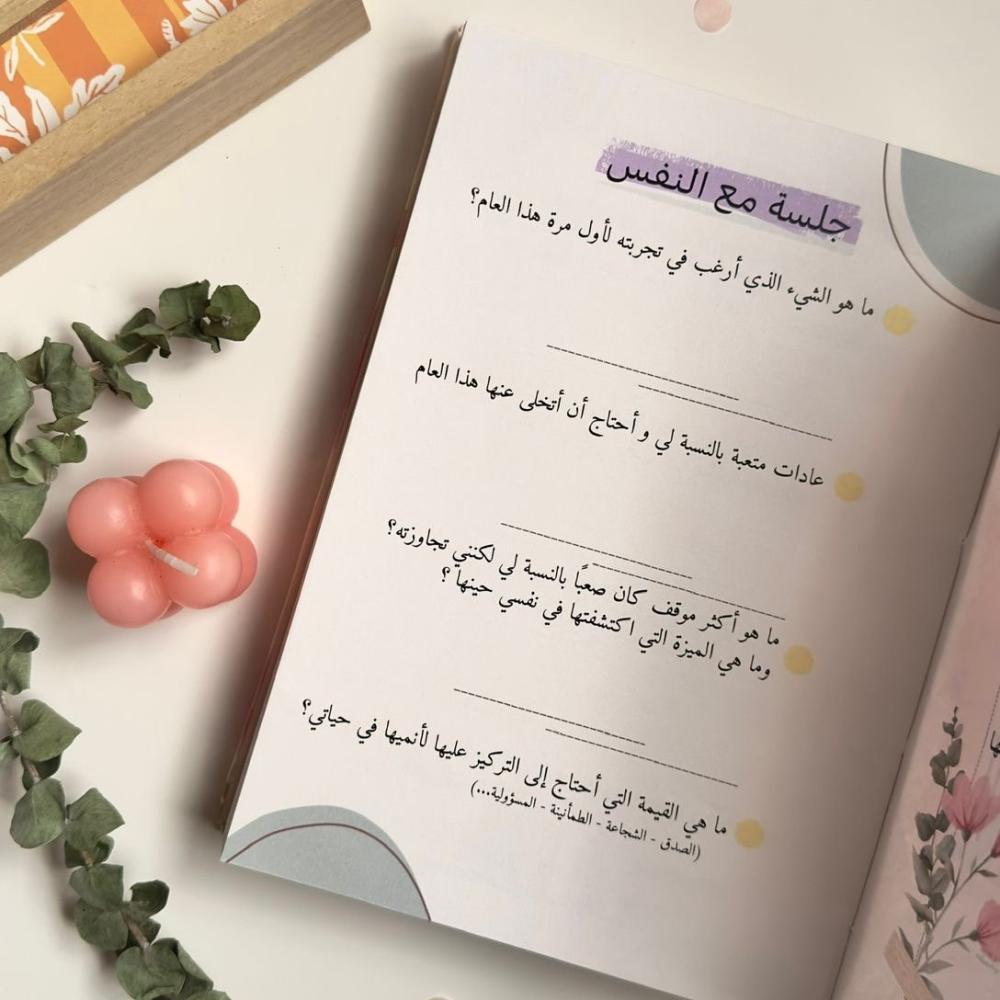 جلسة مع النفس
ما هو الشيء الذي أرغب في تجربته لأول مرة هذا العام؟
عادات متعبة بالنسبة لي و أحتاج أن أتخلى عنها هذا العام
ما هو أكثر موقف كان صعبًا بالنسبة لي لكنني تجاوزته؟
وما هي الميزة التي اكتشفتها في نفسي حينها ؟
ما هي القيمة التي أحتاج إلى التركيز عليها لأنميها في حياتي؟
(الصدق - الشجاعة - الطمأنينة - المسؤولية...)